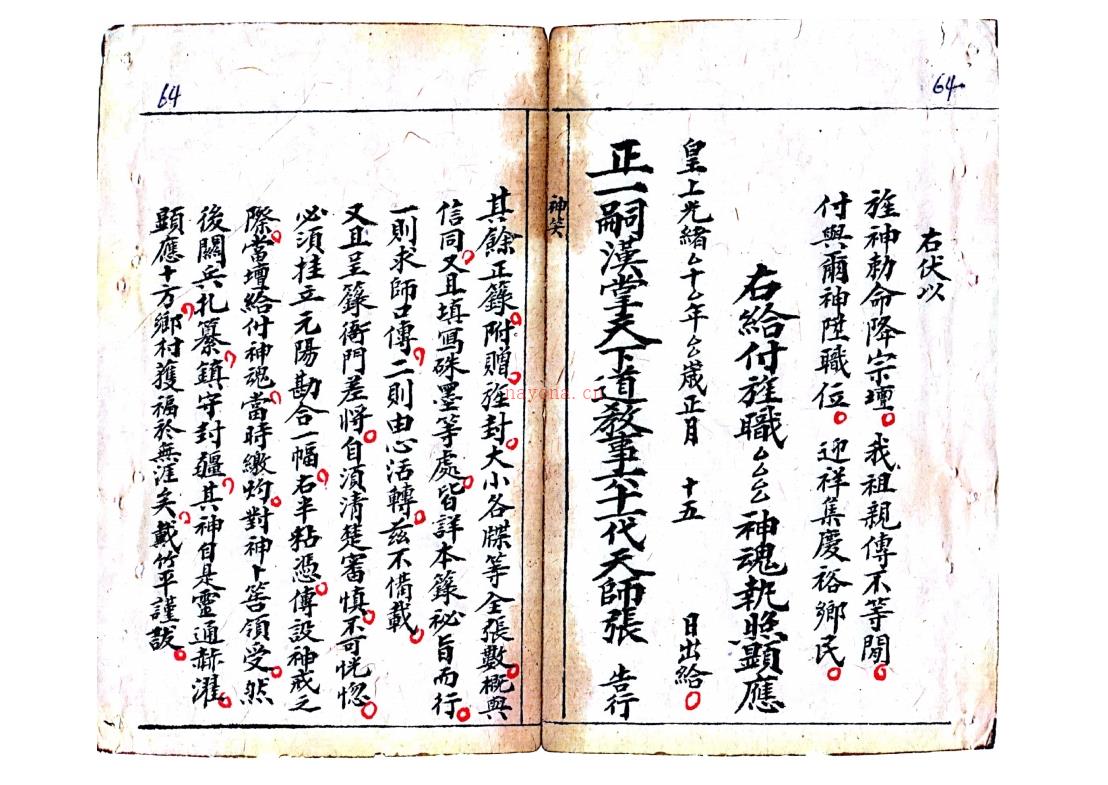 64
右伏以
旌神勅命降宗壇。我祖親傳不等閒。
付與爾神陞職位。迎祥集慶裕鄉民。
右給付旌職厶厶厶神魂執照顯應
皇上光緒厶十厶年厶厶歲正月 十五 日出給。
正一嗣漢掌天下道教事六十一代天師張 告行
神笑
64
其餘正籙。附贈。旌封。大小各牒等全張數。概與
信同。又且填寫硃墨等處。皆詳本籙祕旨而行。
一則求師口傳。二則由心活轉。茲不備載。
又且呈籙衙門差將。自須清楚審慎。不可恍惚。
必須挂立元陽勘合一幅。右半粘憑。傳設神戒之
際。當壇給付神魂。當時繳灼。對神卜筶領受。然
後關兵扎纂。鎮守封疆。其神自是靈通赫濯。
顯應十方。鄉村獲福於無涯矣。戴竹平謹誌。
nayona.cn